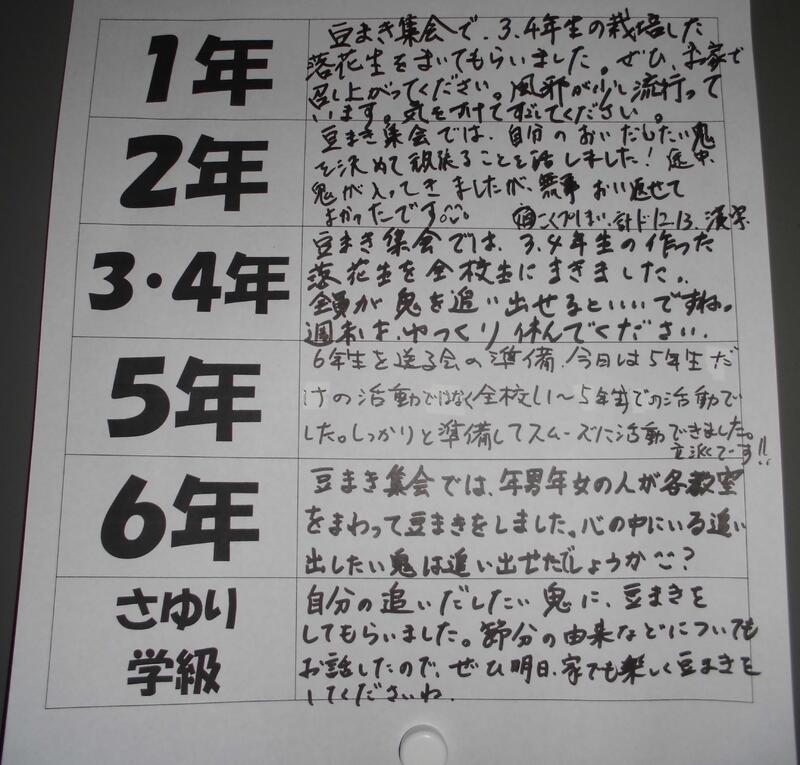 1年
豆まき集会で、3.4年生の栽培した
落花生をまいてもらいました。ぜひ、お家で
召し上がってください。風邪が少し流行って
います。気をつけてすごしてください。
2年
豆まき集会では、自分のおいだしたい鬼
を決めて頑張ることを話しました!途中、
鬼が入ってきましたが、無事おい返せて
よかったです。
計ド12.13、漢字
3・4年
豆まき集会では、3.4年生の作った
落花生を全校生にまきました。
全員が鬼を追い出せるといいですね。
週末は、ゆっくり休んでください。
5年
6年生を送る会の準備、今日は5年生だ
けの活動ではなく全校(1〜5年生)での活動で
した。しっかりと準備してスムーズに活動できました。
立派です!!
6年
豆まき集会では、年男年女の人が各教室
をまわって豆まきをしました。心の中にいる追い
出したい鬼は追い出せたでしょうか^^?
さゆり
学級
自分の追いだしたい鬼に、豆まきを
してもらいました。節分の由来などについても
お話したので、ぜひ明日、家でも楽しく豆まきを
してくださいね。